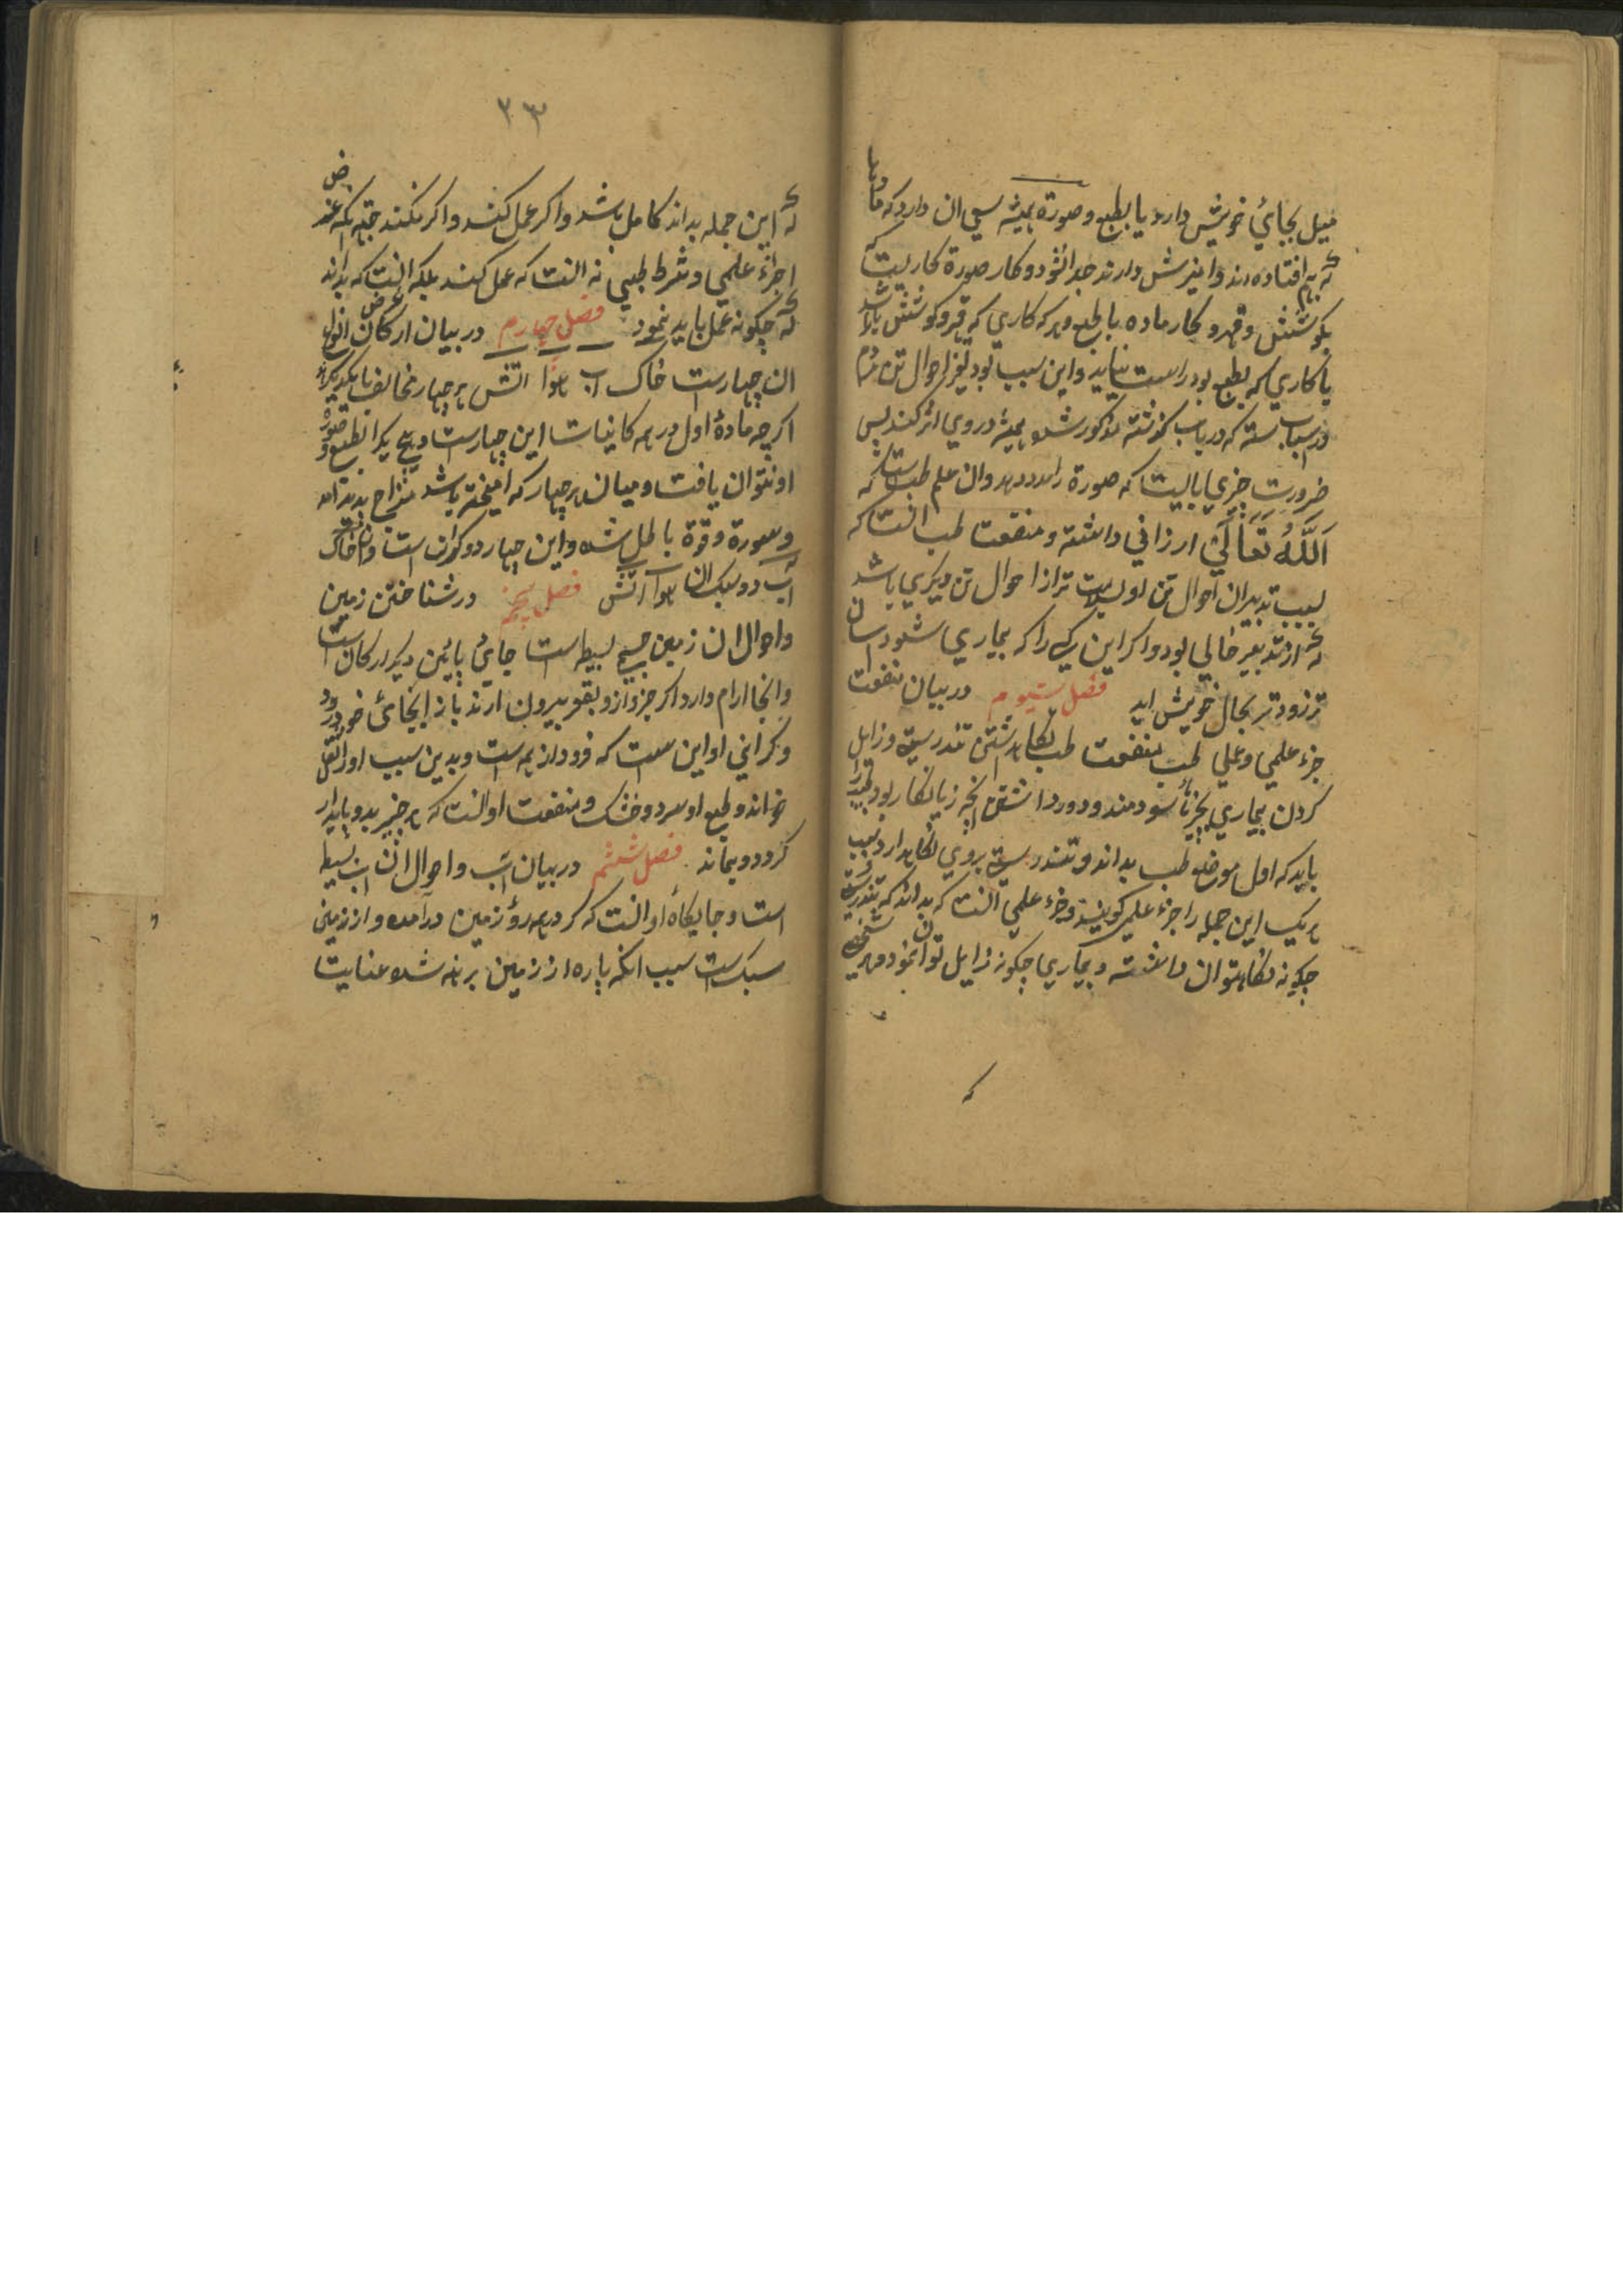 میل بجای خویش دارد یا بطبع و صورة همیشه سعی ان دارد که
بهم افتاده اند و امیزش دارند جدا نشود و کار صورة کاریست که
بکوشش و قهر و کار ماده بالطبع و هر که کاری که بقهر و کوشش باشد
با کاری که بطبع بود راست نیاید و این سبب بود تغیر احوال تن مردم
و اسباب سته که در باب گذشته مذکور شد همیشه در وی اثر کند پس
ضرورت چیزی بایست که صورة را مدد دهد و ان علم طب است که
اَللّٰهُ تَعَالٰی ارزانی داشته و منفعت طب انست که
بسبب تدبیر ان احوال تن او بسلامت تر از احوال تن دیگری باشد
که از تدبیر خالی بود و اگر این کس را که بیماری شود اسان
تر و زودتر بحال خویش اید فصل سیوم در بیان منفعت
جزء علمی و عملی طب منفعت طب نگاهداشتن تندرستی و زایل
کردن بیماری بچیزهاء سودمند و دور داشتن انچه زیانکار بود طبیب را
باید که اول موضع طب بداند و تندرستی بروی نگاهدارد سبب
هر یک این جمله را جزء علمی گویند و جزء علمی انست که بداند که تندرستی
چگونه نگاه توان داشت و بیماری چگونه زایل توان نمود و هر
که
۲۳
که این جمله بداند کامل باشد و اگر عمل کند و اگر نکند جهة انکه غرض
اجزاء علمی و شرط طبیبی نه انست که عمل کند بلکه انست که بداند
که چگونه عمل باید نمود فصل چهارم در بیان ارکان
ان چهارست خاک اب هوا اتش هر چهار مخالف یکدیگر
اگرچه مادهٔ اول در همه کاینات این چهارست و هیچ یک را بطبع و صورة
او نتوان یافت و میان هر چهار که امیخته باشد مزاج پدید امد
و صورة و قوة باطل شده و این چهار دو گران است و ان خاک
اب و دو سبک ان هوا اتش فصل پنجم در شناختن زمین
و احوال ان زمین جسم بسیط است جای پائین دیگر ارکان است
و انجا ارام دارد اگر جزو ازو بقهر بیرون ارند باز بجای خود رود
و گرانی او این ست که فرود از همه است و بدین سبب او را ثقل
خوانند و طبع او سرد و خشک و منفعت او انست که هر چیز بدو پایدار
گردد و بماند فصل ششم در بیان اب و احوال ان اب بسیط
است و جایگاه او انست که گرد همه رؤ زمین درآمده و از زمین
سبک است سبب انکه پاره از زمین برهنه شده عنایت